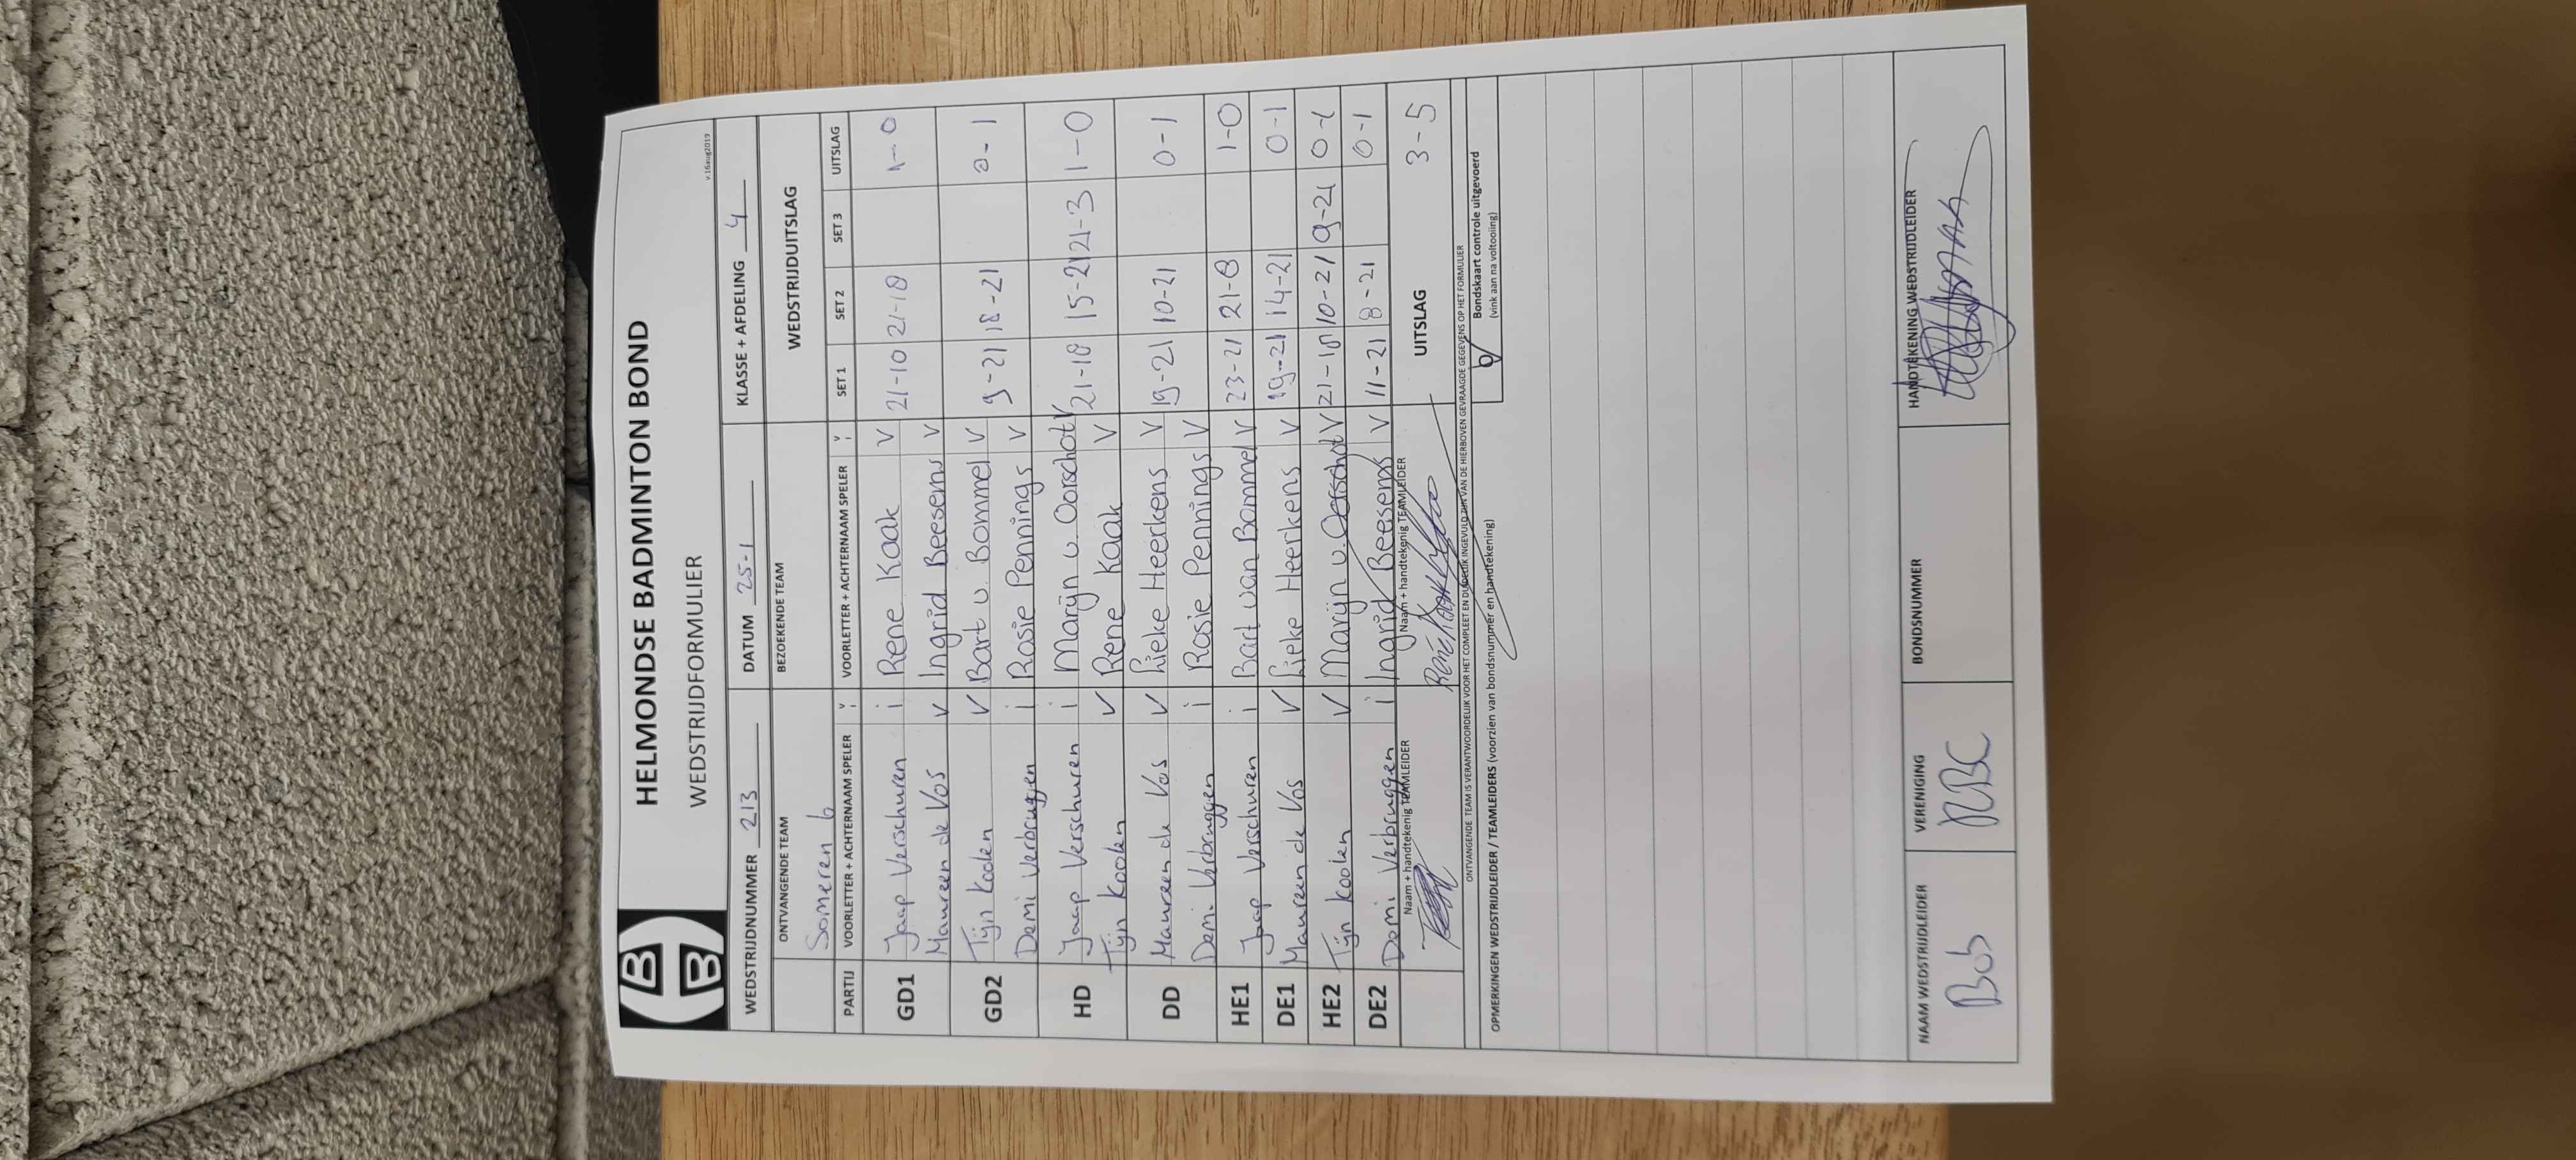 HELMONDSE BADMINTON BOND
WEDSTRIJDFORMULIER
v.16aug2019
WEDSTRIJDNUMMER 213 DATUM 25-1 KLASSE + AFDELING 4
ONTVANGENDE TEAM BEZOEKENDE TEAM WEDSTRIJDUITSLAG
Someren 6
PARTIJ VOORLETTER + ACHTERNAAM SPELER V/i VOORLETTER + ACHTERNAAM SPELER V/i SET 1 SET 2 SET 3 UITSLAG
GD1 Jaap Verschuren i Rene Kaak V 21-10 21-18 1-0
Maureen de Vos V Ingrid Beesems V
GD2 Tijn Koolen V Bart v Bommel V 9-21 18-21 0-1
Demi Verbruggen i Rosie Pennings V
HD Jaap Verschuren i Marijn v. Oorschot V 21-18 15-21 21-3 1-0
Tijn Koolen V Rene Kaak V
DD Maureen de Vos V Lieke Heerkens V 19-21 10-21 0-1
Demi Verbruggen i Rosie Pennings V
HE1 Jaap Verschuren i Bart van Bommel V 23-21 21-8 1-0
DE1 Maureen de Vos V Lieke Heerkens V 19-21 14-21 0-1
HE2 Tijn Koolen V Marijn v. Oorschot V 21-18 10-21 9-21 0-1
DE2 Demi Verbruggen i Ingrid Beesems V 11-21 8-21 0-1
Naam + handtekenig TEAMLEIDER Naam + handtekenig TEAMLEIDER UITSLAG 3-5
René Kaak
ONTVANGENDE TEAM IS VERANTWOORDELIJK VOOR HET COMPLEET EN DUIDELIJK INGEVULD ZIJN VAN DE HIERBOVEN GEVRAAGDE GEGEVENS OP HET FORMULIER
Bondskaart controle uitgevoerd
(vink aan na voltooiing)
OPMERKINGEN WEDSTRIJDLEIDER / TEAMLEIDERS (voorzien van bondsnummer en handtekening)
NAAM WEDSTRIJDLEIDER VERENIGING BONDSNUMMER HANDTEKENING WEDSTRIJDLEIDER
Bob